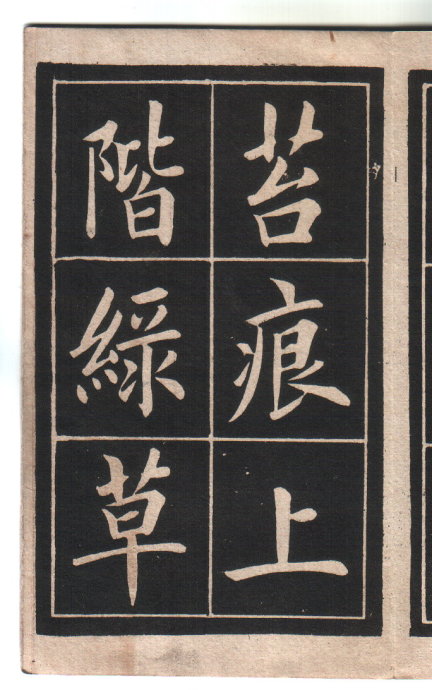 苔痕上
階綠草